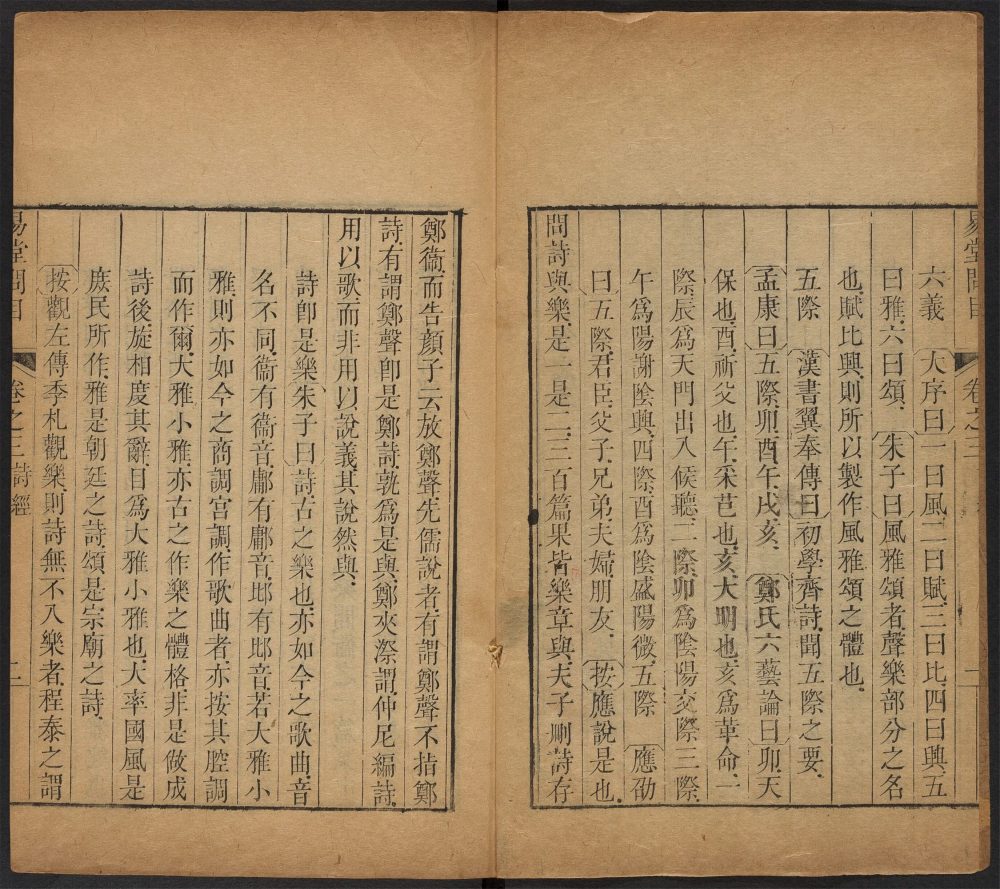 易堂問目 卷之三 二
六義 大序曰一曰風二曰賦三曰比四曰興五
曰雅六曰頌 朱子曰風雅頌者聲樂部分之名
也賦比興則所以製作風雅頌之體也
五際 漢書翼奉傳曰初學齊詩聞五際之要
孟康曰五際卯酉午戌亥 鄭氏六藝論曰卯天
保也酉祈父也午采芑也亥大明也亥爲革命一
際辰爲天門出入候聽二際卯爲陰陽交際三際
午爲陽謝陰興四際酉爲陰盛陽微五際 應劭
曰五際君臣父子兄弟夫婦朋友 按應說是也
問詩與樂是一是二三百篇果皆樂章與夫子刪詩存
鄭衞而告顏子云放鄭聲先儒說者有謂鄭聲不指鄭
詩有謂鄭聲卽是鄭詩孰爲是與鄭夾漈謂仲尼編詩
用以歌而非用以說義其說然與
詩卽是樂朱子曰詩古之樂也亦如今之歌曲音
名不同衞有衞音鄘有鄘音邶有邶音若大雅小
雅則亦如今之商調宮調作歌曲者亦按其腔調
而作爾大雅小雅亦古之作樂之體格非是做成
詩後旋相度其辭目爲大雅小雅也大率國風是
庶民所作雅是朝廷之詩頌是宗廟之詩
按觀左傳季札觀樂則詩無不入樂者程泰之謂
易堂問目 卷之三 詩經 二